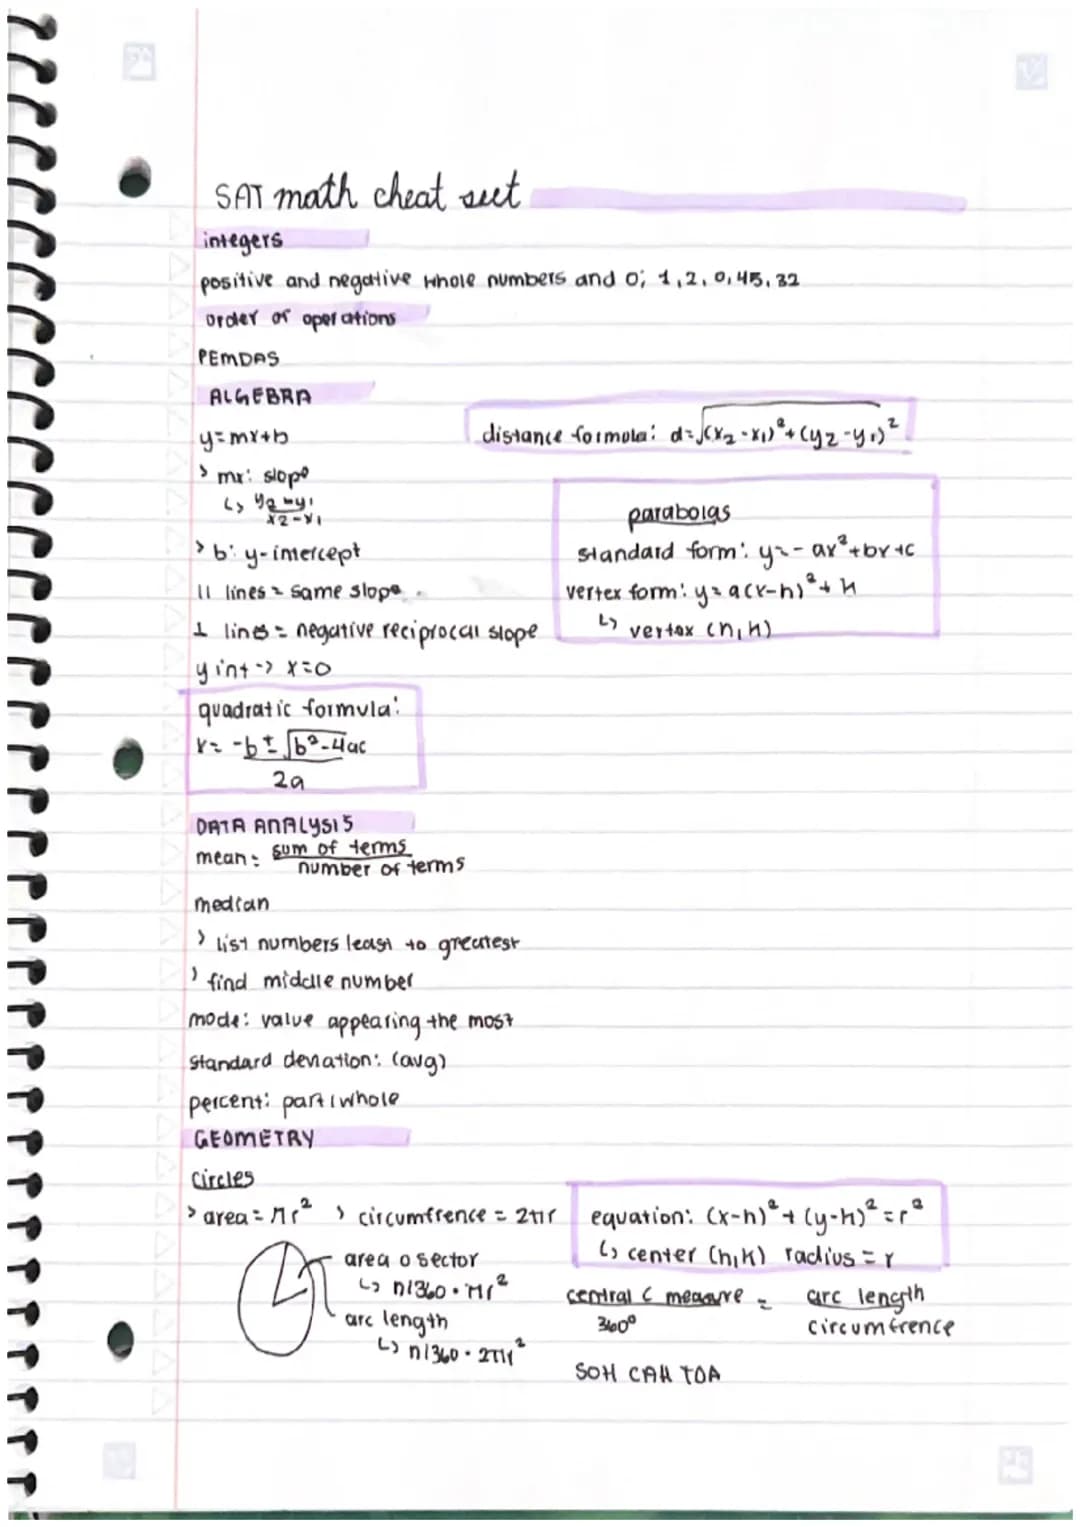 SAT math cheat seet
integers
positive and negative whole numbers and 0; 1, 2, 0, 45, 32
order of operations
PEMDAS
ALGEBRA
y=mx+b
> mx: slope
↳ y2-y1
x2-x1
> b: y-intercept
|| lines = same slope
⊥ lines = negative reciprocal slope
y int -> x=0
distance formula: d=√(x2-x1)²+(y2-y1)²
parabolas
standard form: y=-ax²+bx+c
vertex form: y=a(x-h)²+k
↳ vertex (h,k)
quadratic formula:
x= -b±√b²-4ac
2a
DATA ANALYSIS
mean: sum of terms
number of terms
median
> list numbers least to greatest
> find middle number
mode: value appearing the most
standard deviation: (avg)
percent: part/whole
GEOMETRY
circles
> area = πr² > circumfrence = 2πr
area o sector
↳ n/360 · πr²
arc length
↳ n/360 · 2πr²
equation: (x-h)²+(y-k)²=r²
↳ center (h,k) radius = r
central < measure = arc length
360° circumfrence
SOH CAH TOA